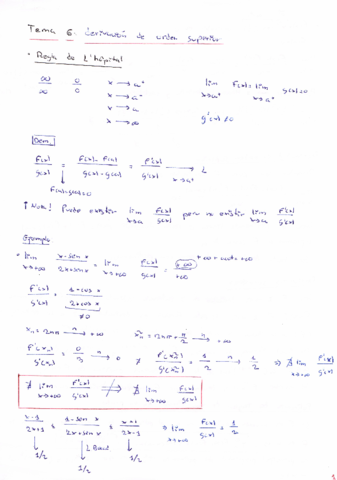 Tema 6. Derivación de orden superior
• Regla de L'hôpital
∞/∞  0/0  x → a⁺  lim x→a⁺ F(x) = lim x→a⁺ g(x) = 0
x → a⁻
x → a  g'(x) ≠ 0
x → ∞
Dem.
F(x)/g(x) = F(x) - F(a)/g(x) - g(a) = F'(x)/g'(x) → x→a⁺ L
F(a)=g(a)=0
¡Nota! Puede existir lim x→a F(x)/g(x) pero no existir lim x→a F'(x)/g'(x)
Ejemplo
• lim x→+∞ x - sen x/2x + sen x = lim x→+∞ F(x)/g(x) = +∞/+∞
F'(x)/g'(x) = 1 - cos x/2 + cos x
≠0
F'(xn)/g'(xn) = 0/3 n→ 0 ≠ 1/2 n→ 1/2 ⇒ ∄ lim x→+∞ F'(x)/g'(x)
∄ lim x→+∞ F'(x)/g'(x) ⇏ ∄ lim x→+∞ F(x)/g(x)
x-1/2x+1 ≤ x - sen x/2x + sen x ≤ x+1/2x-1 ⇒ lim x→+∞ F(x)/g(x) = 1/2
1/2 1/2
1/2